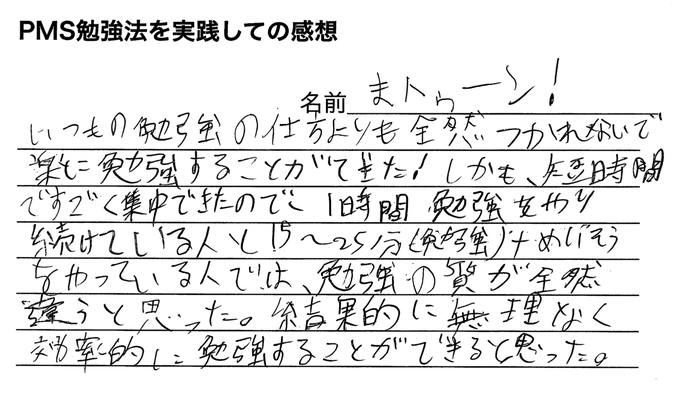 PMS勉強法を実践しての感想
名前 まトゥーン!
いつもの勉強の仕方よりも全然つかれないで
楽に勉強することができた!しかも、短時間
ですごく集中できたので、1時間 勉強をやり
続けている人と15〜25分(勉強)+めいそう
をやっている人では、勉強の質が全然
違うと思った。結果的に無理なく
効率的に勉強することができると思った。